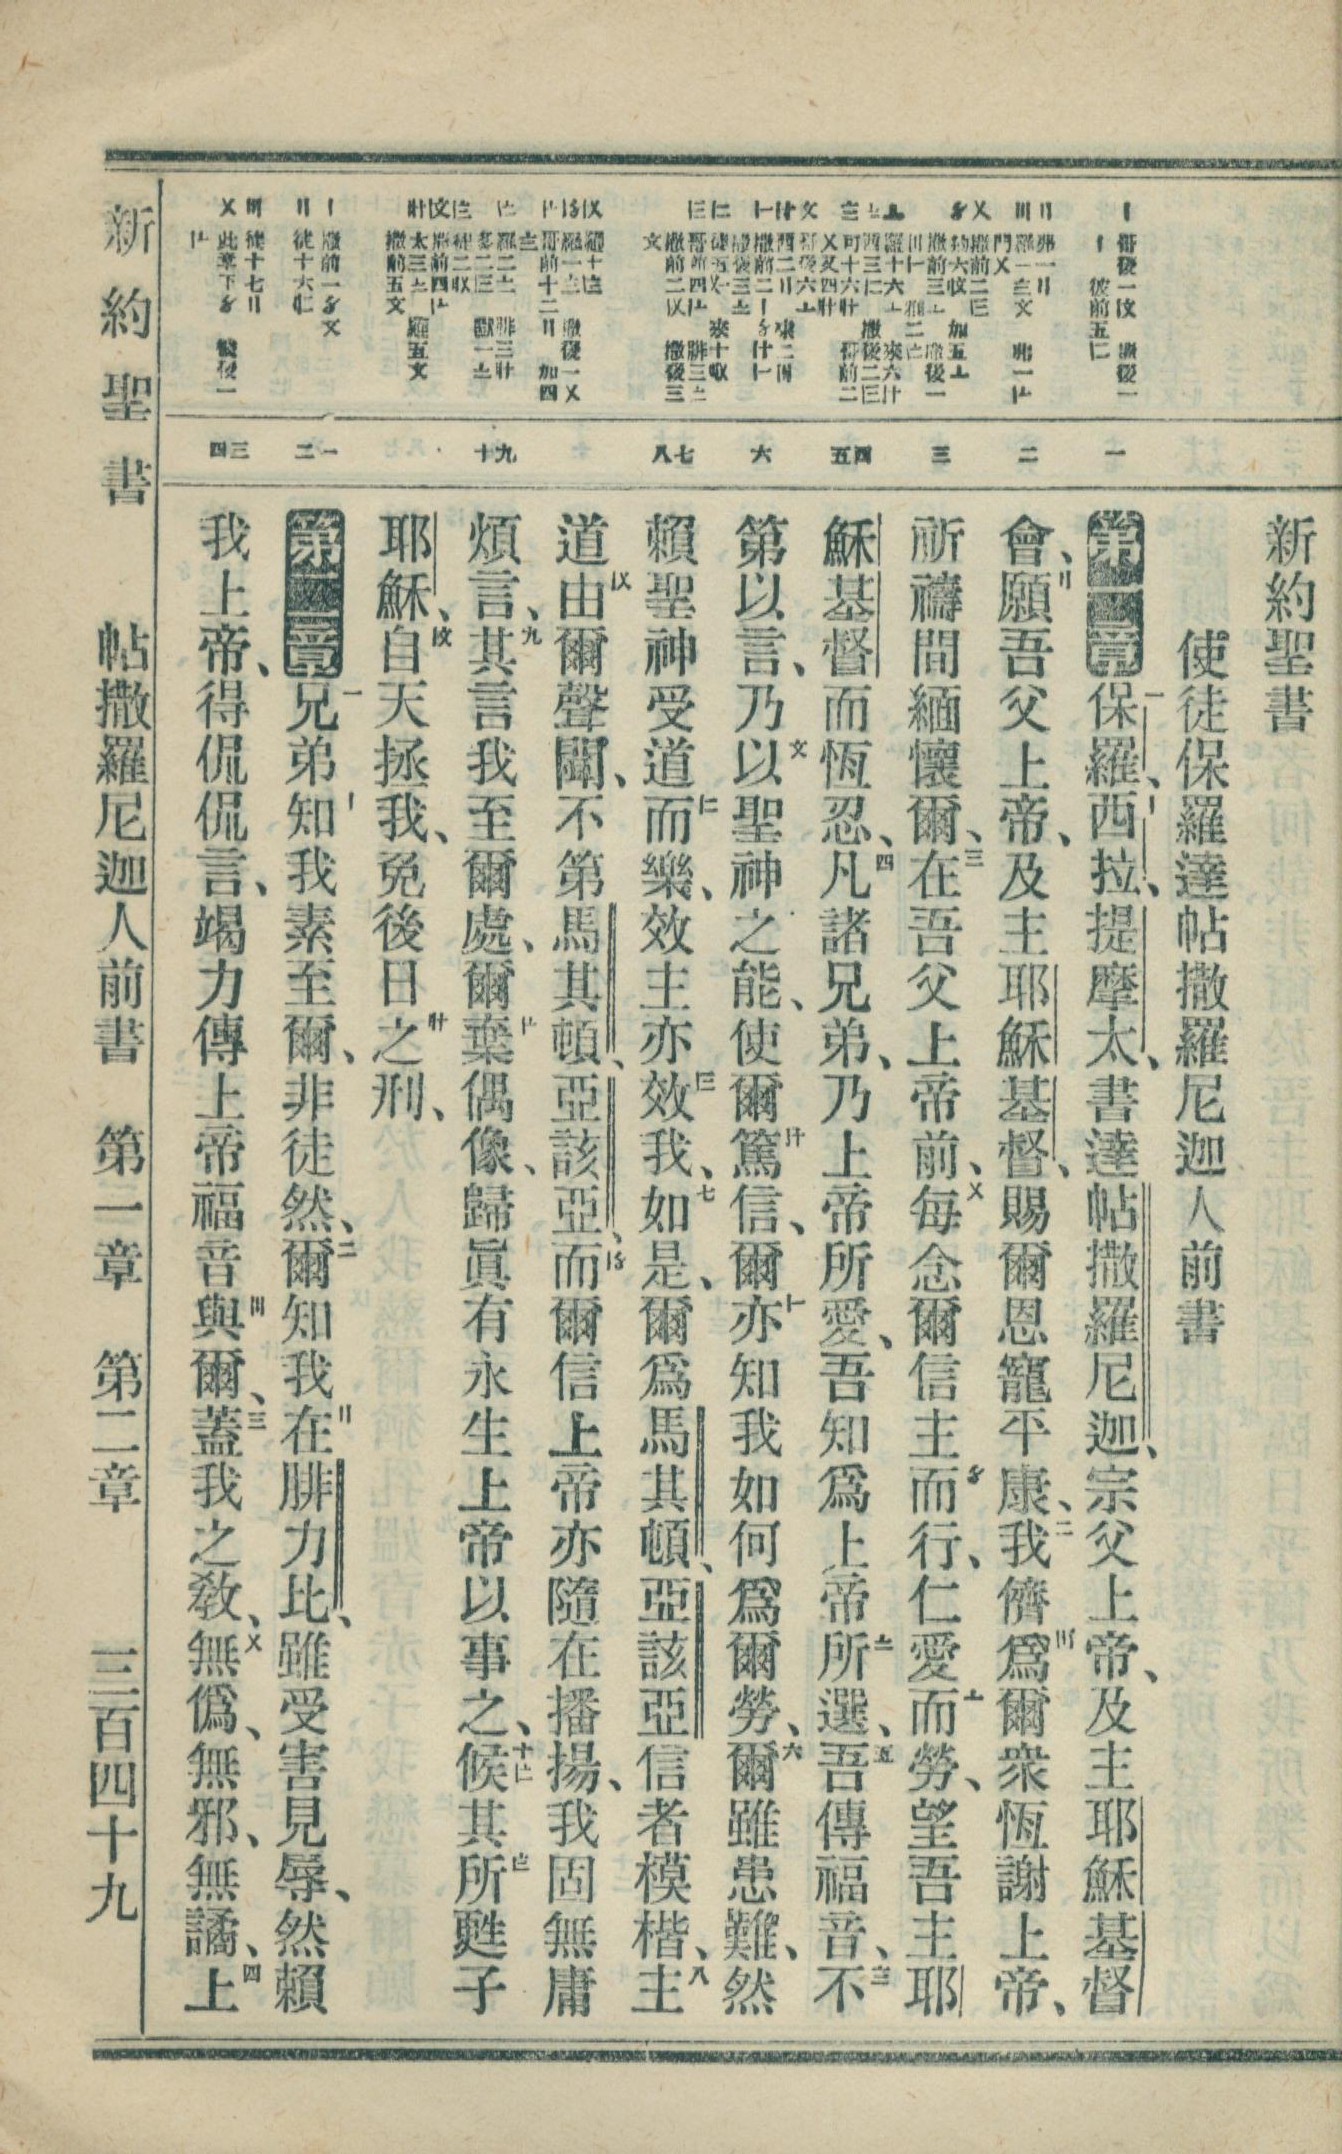 新約聖書
使徒保羅達帖撒羅尼迦人前書
第一章 保羅、西拉、提摩太、書達帖撒羅尼迦、宗父上帝、及主耶穌基督
會、願吾父上帝、及主耶穌基督、賜爾恩寵平康、我儕爲爾衆恆謝上帝、
祈禱間緬懷爾、在吾父上帝前、每念爾信主而行、仁愛而勞、望吾主耶
穌基督而恆忍、凡諸兄弟、乃上帝所愛、吾知爲上帝所選、吾傳福音、不
第以言、乃以聖神之能、使爾篤信、爾亦知我如何爲爾勞、爾雖患難、然
賴聖神受道而樂、效主亦效我、如是、爾爲馬其頓、亞該亞信者模楷、主
道由爾聲聞、不第馬其頓、亞該亞、而爾信上帝亦隨在播揚、我固無庸
煩言、其言我至爾處、爾棄偶像、歸眞有永生上帝以事之、候其所甦子
耶穌、自天拯我、免後日之刑、
第二章 兄弟知我素至爾、非徒然、爾知我在腓力比、雖受害見辱、然賴
我上帝、得侃侃言、竭力傳上帝福音與爾、蓋我之敎、無僞、無邪、無譎、上
一
二
三
四五
六
七八
九十
一二
三四
新約聖書 帖撒羅尼迦人前書 第一章 第二章 三百四十九